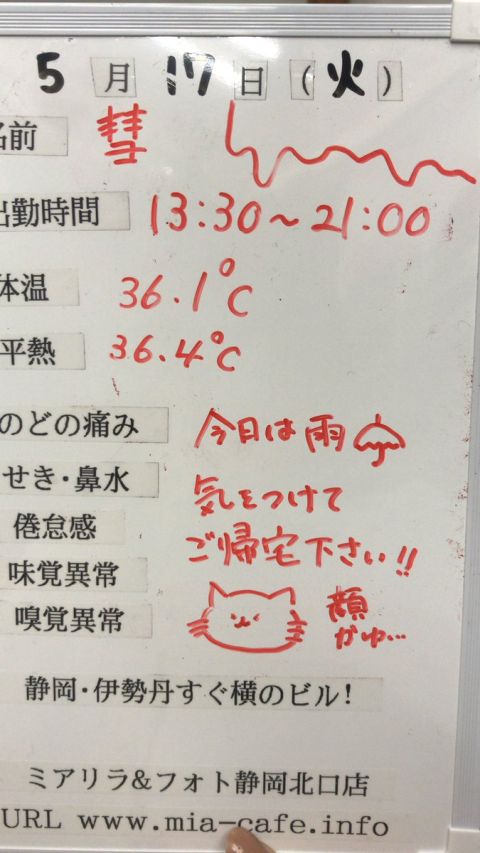 5月17日(火)
名前 彗
出勤時間 13:30〜21:00
体温 36.1℃
平熱 36.4℃
のどの痛み
せき・鼻水
倦怠感
味覚異常
嗅覚異常
今日は雨
気をつけて
ご帰宅下さい!!
顔
がゆ…
静岡・伊勢丹すぐ横のビル!
ミアリラ&フォト静岡北口店
URL www.mia-cafe.info